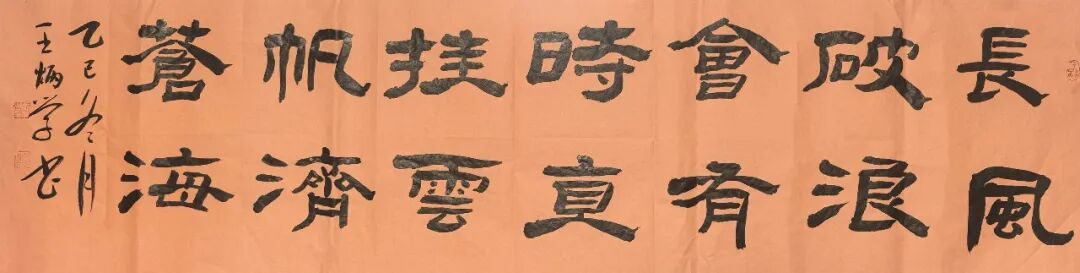 長風
破浪
會有
時直
挂雲
帆濟
蒼海
乙巳冬月
王炳学书